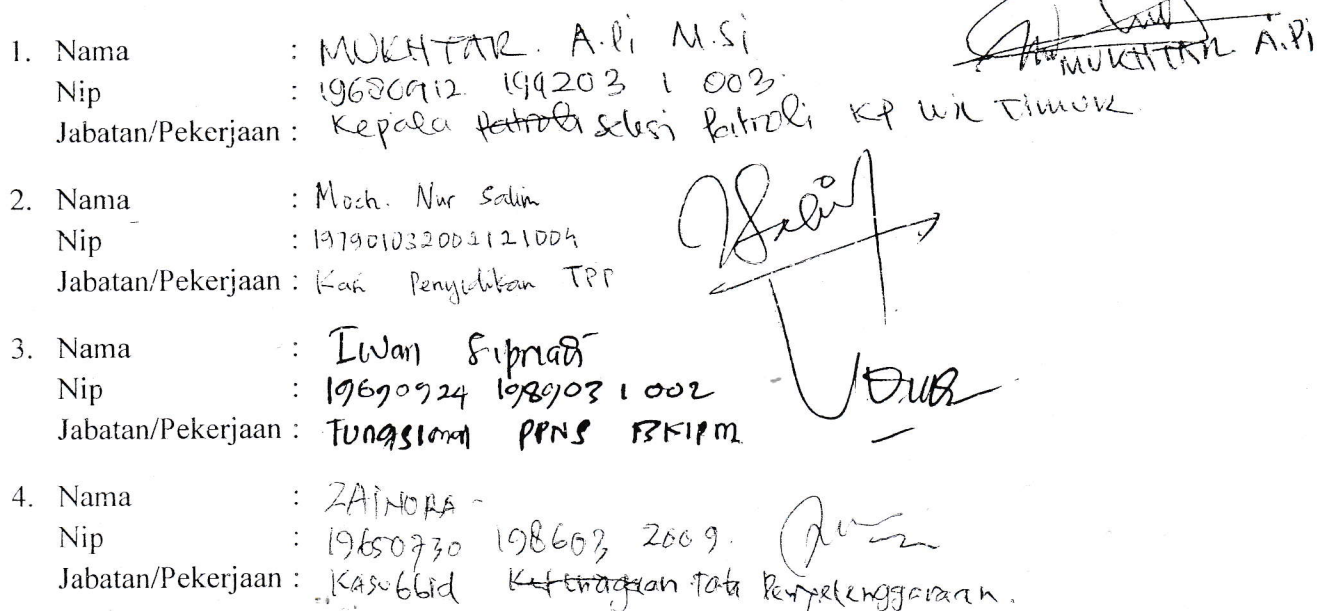 1. Nama : MUKHTAR. A.Pi M.Si
MUKHTAR A.Pi
Nip : 19680912 199203 1 003.
Jabatan/Pekerjaan : Kepala Patroli seksi Patroli KP Wil Timur
2. Nama : Moch. Nur Salim
Nip : 197901032002121004
Jabatan/Pekerjaan : Kasi Penyidikan TPP
3. Nama : Iwan
Nip : 19690924 198903 1 002
Jabatan/Pekerjaan : Fungsional PPNS BKIPM
4. Nama : ZAINORA -
Nip : 19650730 198603 2009.
Jabatan/Pekerjaan : Kasubbid Tata Penyelenggaraan.